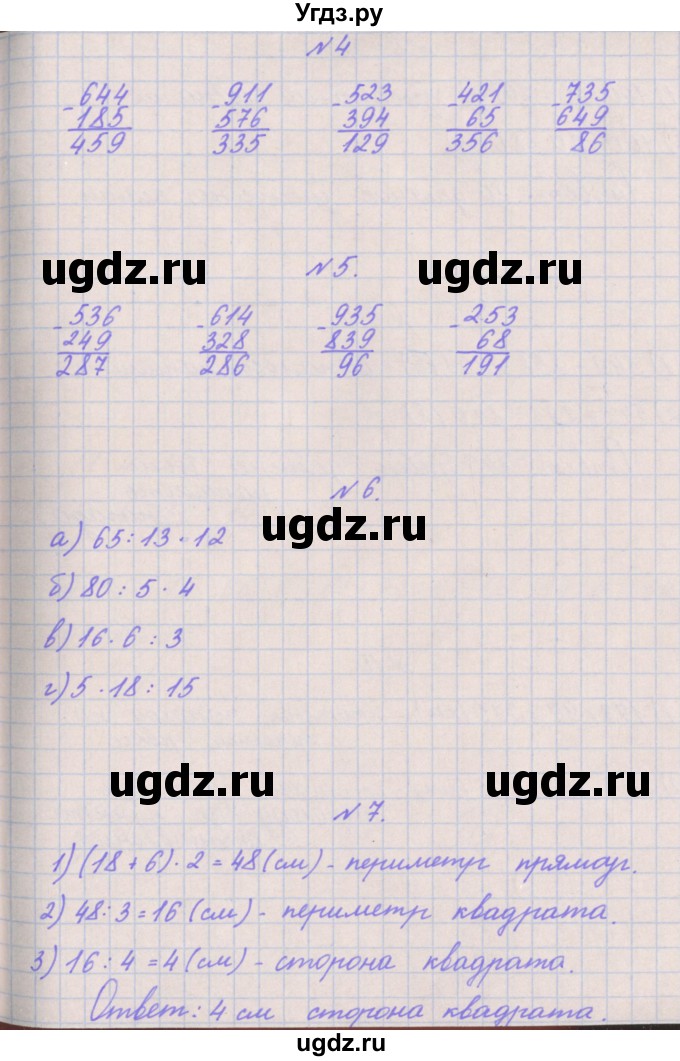 Угдз.ру
№4
-644 -911 -523 -421 -735
185 576 394 65 649
459 335 129 356 86
ugdz.ru №5. ugdz.ru
-536 -614 -935 -253
249 328 839 68
287 286 96 191
№6.
ugdz.ru
а) 65:13·12
б) 80:5·4
в) 16·6:3
г) 5·18:15
ugdz.ru ugdz.ru
№7.
1) (18+6)·2=48(см) - периметр прямоуг.
2) 48:3=16(см) - периметр квадрата.
3) 16:4=4(см) - сторона квадрата.
Ответ: 4 см сторона квадрата.
ugdz.ru